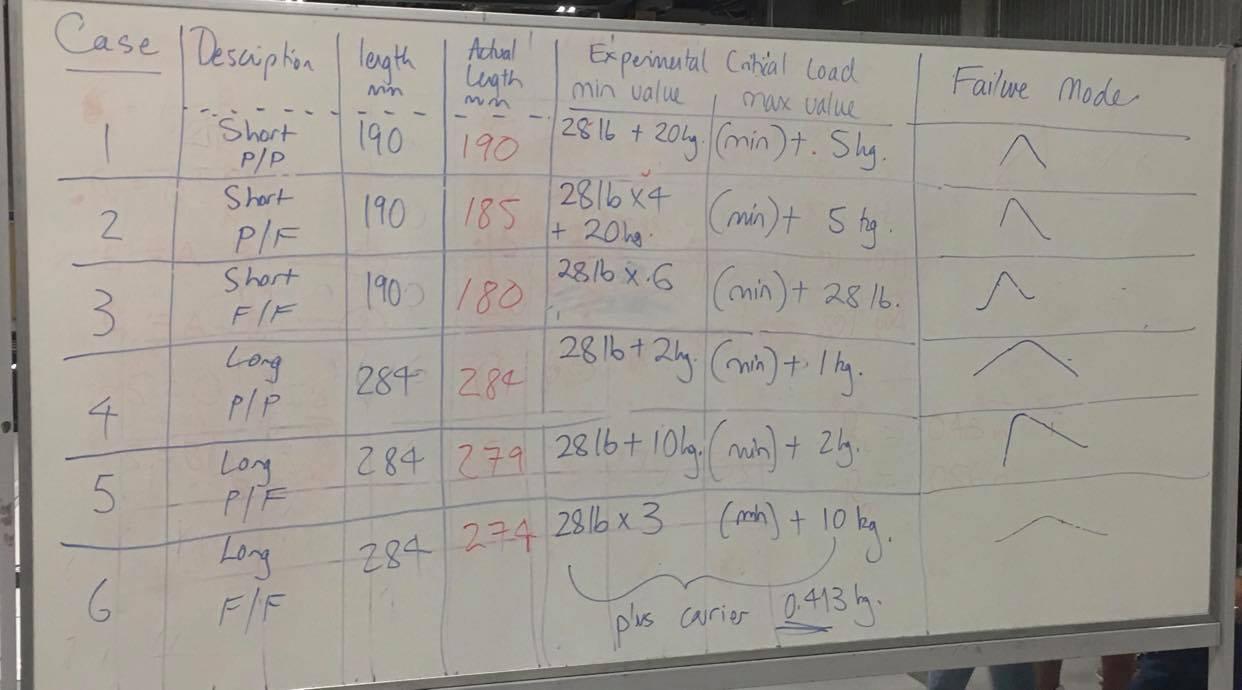 Case Description length mm Actual length mm Experimental Critical Load Failure Mode
min value max value
1 Short P/P 190 190 28lb + 20kg. (min) + . 5kg.
2 Short P/F 190 185 28lb x 4 + 20kg. (min) + 5 kg.
3 Short F/F 190 180 28lb x .6 (min) + 28 lb.
4 Long P/P 284 284 28lb + 2kg. (min) + . 1kg.
5 Long P/F 284 279 28lb + 10kg. (min) + 2kg.
6 Long F/F 284 274 28lb x 3 (min) + 10 kg.
plus carrier 0.413 kg.